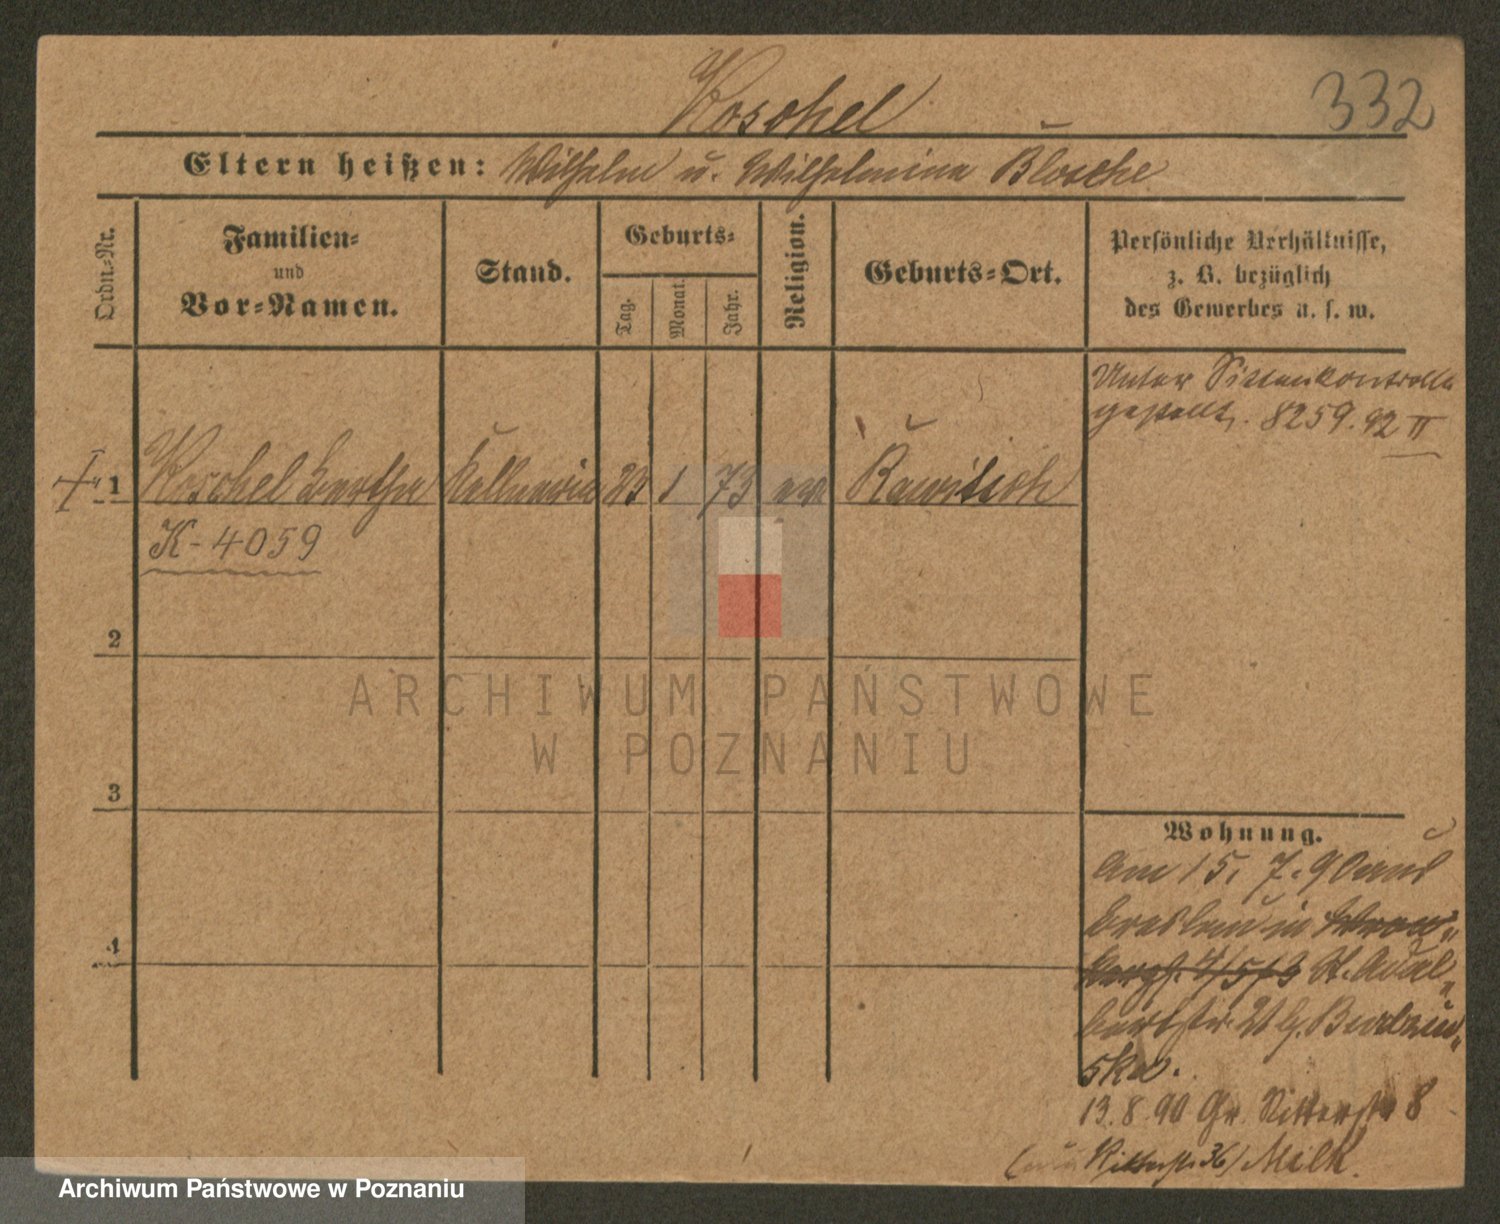 Koschel
332
Eltern heißen: Wilhelm u. Wilhelmina Blosche
Ordn=Nr.
Familien=
und
Vor=Namen.
Stand.
Geburts=
Tag.
Monat.
Jahr.
Religion.
Geburts=Ort.
Persönliche Verhältnisse,
z. B. bezüglich
des Gewerbes u. s. w.
Unter Sittenkontrolle
gestellt. 8259.92 II
1 Koschel Bertha Kellnerin 23 1 73 ev. Rawitsch
K-4059
2
3
4
Wohnung.
Am 15. 7. 90 aus
Breslau in
St. Adal=
bertstr. 21 b.
ska.
13.8.90 Gr. Ritterstr 8
Ritterstr 36) Milk.
ARCHIWUM PAŃSTWOWE
W POZNANIU
Archiwum Państwowe w Poznaniu